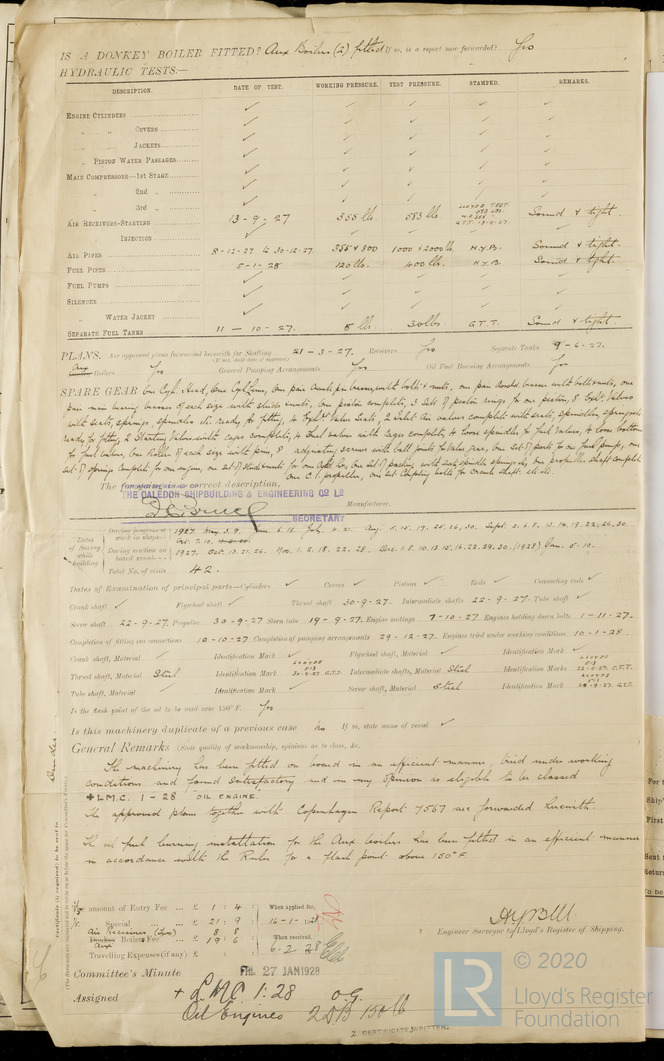 IS A DONKEY BOILER FITTED? Aux Boilers (2) fitted If so, is a report now forwarded? Yes
HYDRAULIC TESTS.—
DESCRIPTION. DATE OF TEST. WORKING PRESSURE. TEST PRESSURE. STAMPED. REMARKS.
ENGINE CYLINDERS ✓ ✓ ✓ ✓ ✓
„ „ COVERS ✓ ✓ ✓ ✓ ✓
„ „ JACKETS ✓ ✓ ✓ ✓ ✓
„ PISTON WATER PASSAGES ✓ ✓ ✓ ✓ ✓
MAIN COMPRESSORS—1st STAGE ✓ ✓ ✓ ✓ ✓
„ 2nd „ ✓ ✓ ✓ ✓ ✓
„ 3rd „ ✓ ✓ ✓ LLOYDS TEST.
AIR RECEIVERS-STARTING 13-9-27 358 lb. 583 lb. G.T.T. 13-9-27. Sound & tight.
INJECTION ✓ ✓ ✓ ✓ ✓
AIR PIPES 8-12-27 to 30-12-27. 1000 & 2000 lb. H.Y.B. Sound & tight.
FUEL PIPES 5-1-28 120 lb. 400 lb. H.Y.B. Sound & tight.
FUEL PUMPS ✓ ✓ ✓ ✓ ✓
SILENCER ✓ ✓ ✓ ✓ ✓
„ WATER JACKET ✓ ✓ ✓ ✓ ✓
SEPARATE FUEL TANKS 11-10-27. 8 lb. 30 lbs. G.T.T. Sound & tight.
PLANS. Are approved plans forwarded herewith for Shafting 21-3-27. Receivers Yes Separate Tanks 9-6-27.
(If not, state date of approval)
Aux Boilers Yes General Pumping Arrangements Yes Oil Fuel Burning Arrangements Yes
SPARE GEAR One Cyl. Head, One Cyl. Liner, One pair Crank pin brasses, with bolts & nuts, one pair
pair main bearing brasses of each size with studs & nuts, One piston complete, 3 Sets of piston rings for one piston, 8 Exht. Valves
with seats, springs, spindles etc. ready for fitting, 4 Exht. Valve Seats, 2 Inlet Air valves complete with seats, spindles, springs etc
ready for fitting, 2 Starting Valves with cages complete, 4 Fuel valves with cages complete, 4 loose spindles for fuel valves,
for fuel valves, One Roller of each size with pins, 8 adjusting screws with ball joints for Valve gear, One set of parts for one fuel pump, one
set of springs complete for one engine, one propeller shaft complete
one C.I. propeller, one set Coupling bolts for Crank shaft, etc etc.
The foregoing is a correct description,
FOR AND ON BEHALF OF
THE CALEDON SHIPBUILDING & ENGINEERING CO LD
Manufacturer.
SECRETARY
Dates of Survey while building
During progress of work in shops-- 1927. May. 3. 9. June. 6. 15. July. 4. 21. Aug. 5. 15. 19. 25. 26. 30. Sept. 2. 6. 8. 13. 14. 19. 22. 26. 30.
Oct. 7. 10.
During erection on board vessel--- 1927. Oct. 13. 21. 26. Nov. 1. 2. 18. 22. 28. Dec. 1. 8. 10. 13. 15. 16. 22. 29. 30. (1928) Jan. 5. 10.
Total No. of visits 42.
Dates of Examination of principal parts—Cylinders ✓ Covers ✓ Pistons ✓ Rods ✓ Connecting rods ✓
Crank shaft ✓ Flywheel shaft ✓ Thrust shaft 30-9-27. Intermediate shafts 22-9-27. Tube shaft ✓
Screw shaft 22-9-27. Propeller 30-9-27 Stern tube 19-9-27. Engine seatings 7-10-27 Engines holding down bolts 1-11-27.
Completion of fitting sea connections 10-10-27 Completion of pumping arrangements 29-12-27. Engines tried under working conditions 10-1-28.
Crank shaft, Material ✓ Identification Mark ✓ Flywheel shaft, Material ✓ Identification Mark ✓
Thrust shaft, Material Steel Identification Mark LLOYDS 513 30-9-27 G.T.T. Intermediate shafts, Material Steel Identification Marks LLOYDS 513 22-9-27. G.T.T.
Tube shaft, Material ✓ Identification Mark ✓ Screw shaft, Material Steel Identification Mark LLOYDS 513 G.T.T.
Is the flash point of the oil to be used over 150° F. Yes
Is this machinery duplicate of a previous case No If so, state name of vessel ✓
General Remarks (State quality of workmanship, opinions as to class, &c.
The machinery has been fitted on board in an efficient manner, tried under working
conditions and found satisfactory and in my opinion is eligible to be classed
+ L.M.C. 1-28 "OIL ENGINE."
The approved plans together with Copenhagen Report 7567 are forwarded herewith.
The oil fuel burning installation for the Aux. boilers has been fitted in an efficient manner
in accordance with the Rules for a flash point above 150° F.
Dundee.
Certificate (if required) to be sent to
The amount of Entry Fee ... £ 1 : 4 : When applied for,
Special ... £ 21 : 9 16-1-28
Air Receivers (two) 8 : 8
Donkey Boiler Fee ... £ 19 : 6 When received,
Aux
Travelling Expenses (if any) £ : : 6.2.28
Engineer Surveyor to Lloyd's Register of Shipping.
Committee's Minute FRI. 27 JAN 1928
Assigned + L.M.C. 1.28 O.G.
Oil Engines 2 DB 150 lb
2 CERTIFICATES WRITTEN.
LR
© 2020
Lloyd's Register
Foundation
For
Ship'
First
Sent
Retur
To be